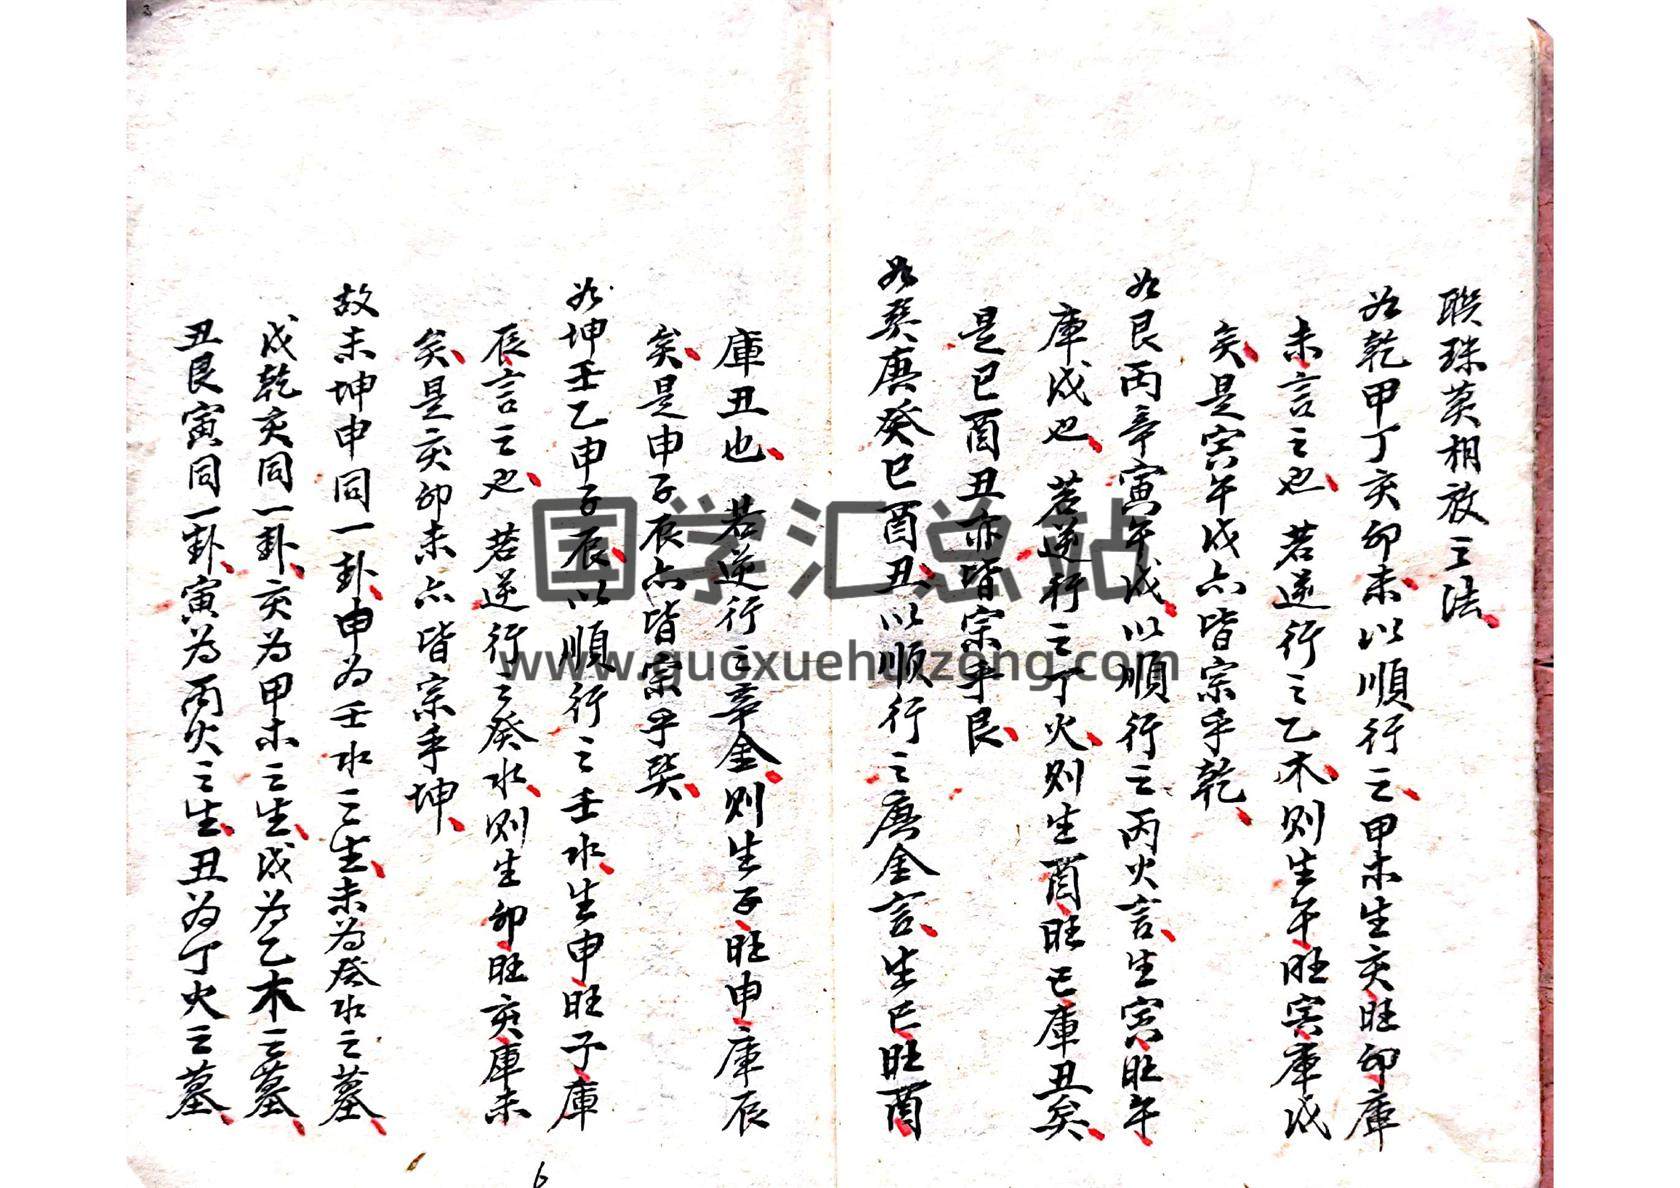 聯珠莫相放之法
如乾甲丁亥卯未以順行之甲木生亥旺卯庫
未言之也若逆行之乙木則生午旺寅庫戌
矣是寅午戌亦皆宗乎乾
如艮丙辛寅午戌以順行之丙火言生寅旺午
庫戌也若逆行之丁火則生酉旺巳庫丑矣
是巳酉丑亦皆宗乎艮
如巽庚癸巳酉丑以順行之庚金言生巳旺酉
庫丑也若逆行之辛金則生子旺申庫辰
矣是申子辰亦皆宗乎巽
如坤壬乙申子辰以順行之壬水生申旺子庫
辰言之也若逆行之癸水則生卯旺亥庫未
矣是亥卯未亦皆宗乎坤
故未坤申同一卦申為壬水之生未為癸水之墓
戌乾亥同一卦亥為甲木之生戌為乙木之墓
丑艮寅同一卦寅為丙火之生丑為丁火之墓
6
国学汇总站
www.guoxuehuizong.com